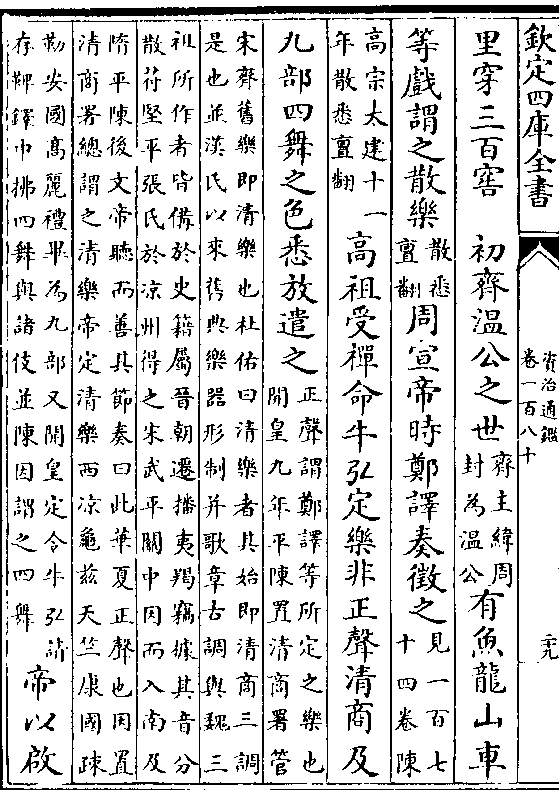 欽定四庫全書
資治通鑑
卷一百八十
里穿三百窖　初齊溫公之世
齊主緯周
封為溫公
有魚龍山車
等戲謂之散樂
散悉
亶翻
周宣帝時鄭譯奏徵之
見一百七
十四卷陳
高宗太建十一
年散悉亶翻
高祖受禪命牛弘定樂非正聲清商及
九部四舞之色悉放遣之
正聲謂鄭譯等所定之樂也
開皇九年平陳置清商署管
宋齊舊樂即清樂也杜佑曰清樂者其始即清商三調
是也並漢氏以來舊典樂器形制并歌章古調與魏三
祖所作者皆備於史籍屬晉朝遷播夷羯竊據其音分
散苻堅平張氏於凉州得之宋武平關中因而入南及
隋平陳後文帝聽而善其節奏曰此華夏正聲也因置
清商署總謂之清樂帝定清樂西凉龜兹天竺康國疎
勒安國髙麗禮畢為九部又開皇定令牛弘請
存鞞鐸巾拂四舞與諸伎並陳因謂之四舞
帝以啟